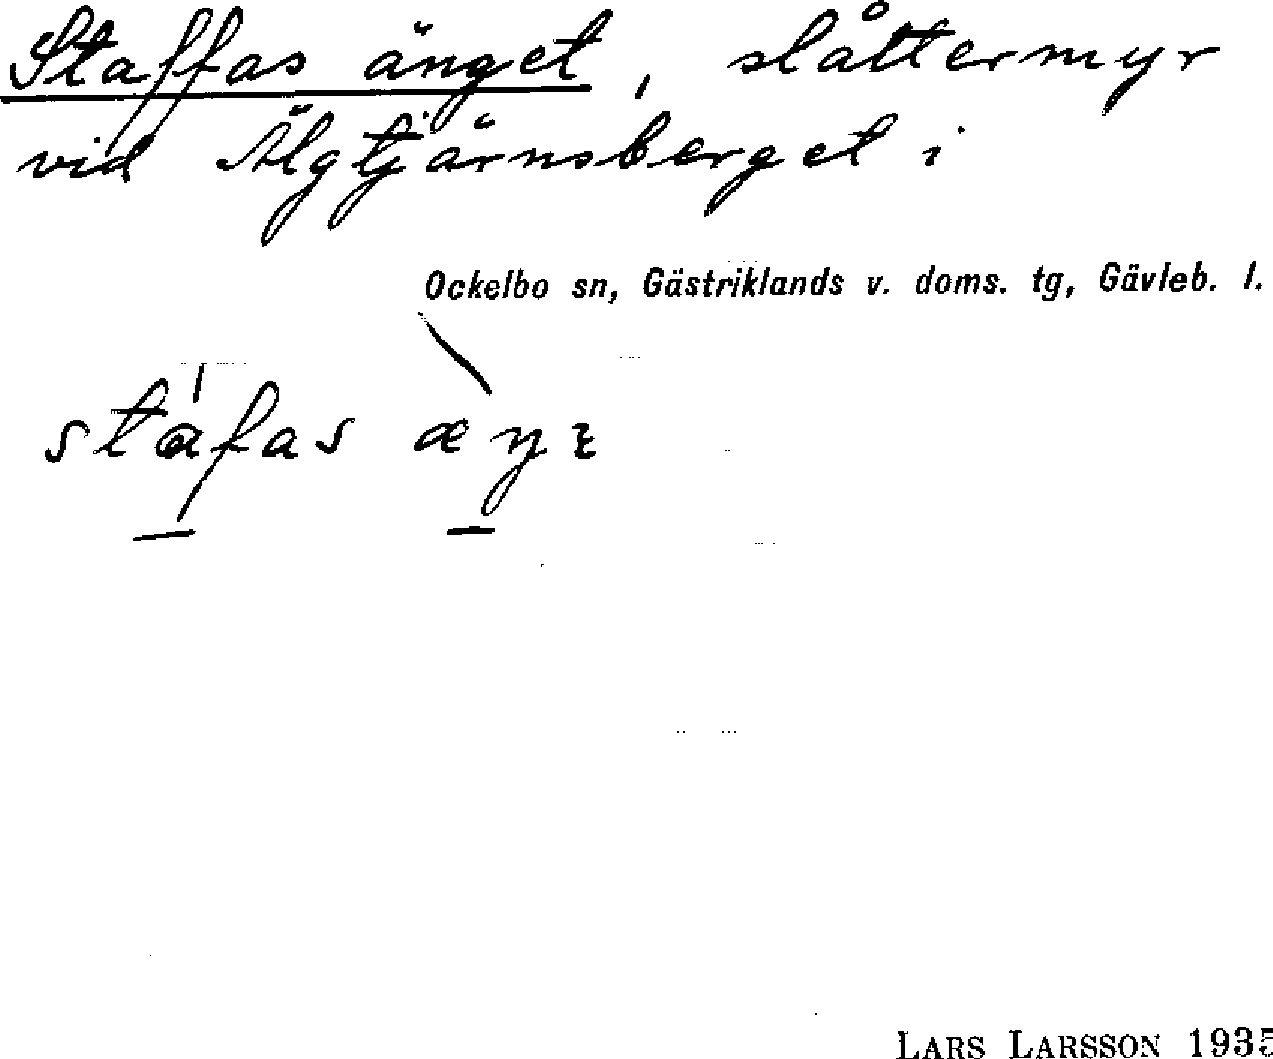 Staffas änget, slåttermyr
vid Älgtjärnsberget i
Ockelbo sn, Gästriklands v. doms. tg, Gävleb. l.
stafas æŋɛ
LARS LARSSON 1935